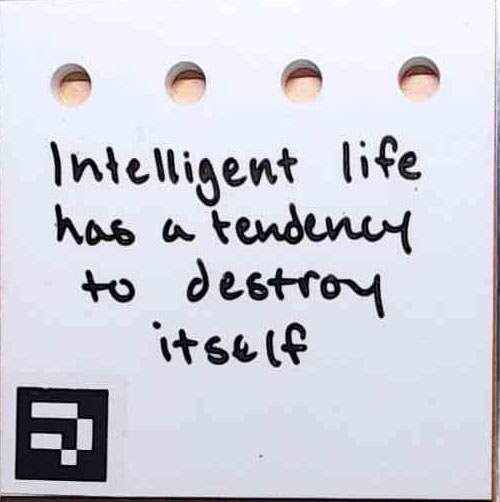 Intelligent life
has a tendency
to destroy
itself